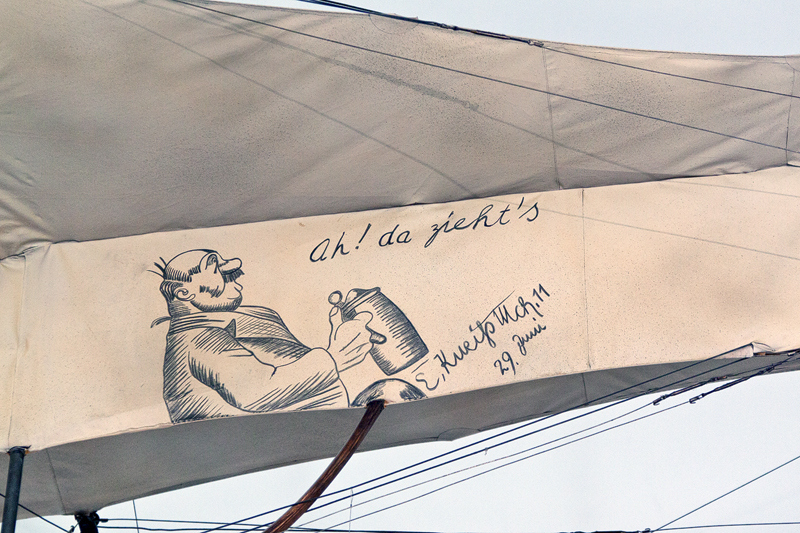 Ah! da zieht's
E, Kneiß Mch, 11
29. Juni